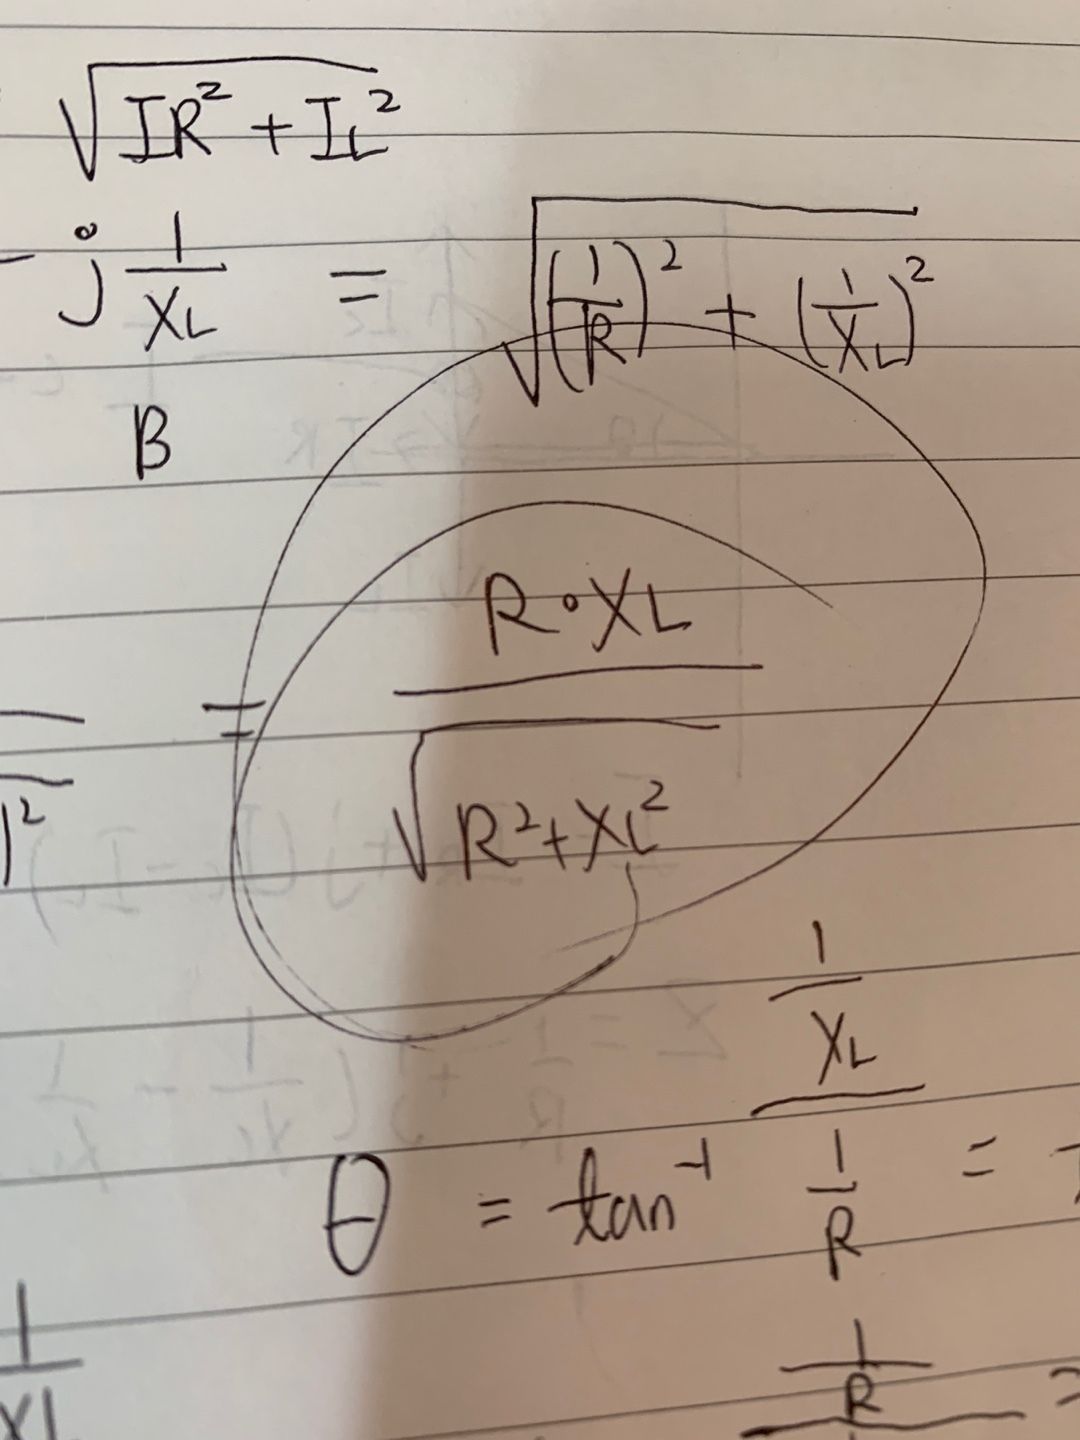 √(IR² + IL²)
- j 1/XL = √((1/R)² + (1/XL)²)
B
= R·XL / √(R²+XL²)
)²
θ = tan⁻¹ (1/XL)/(1/R) =
1/XL
1/R =